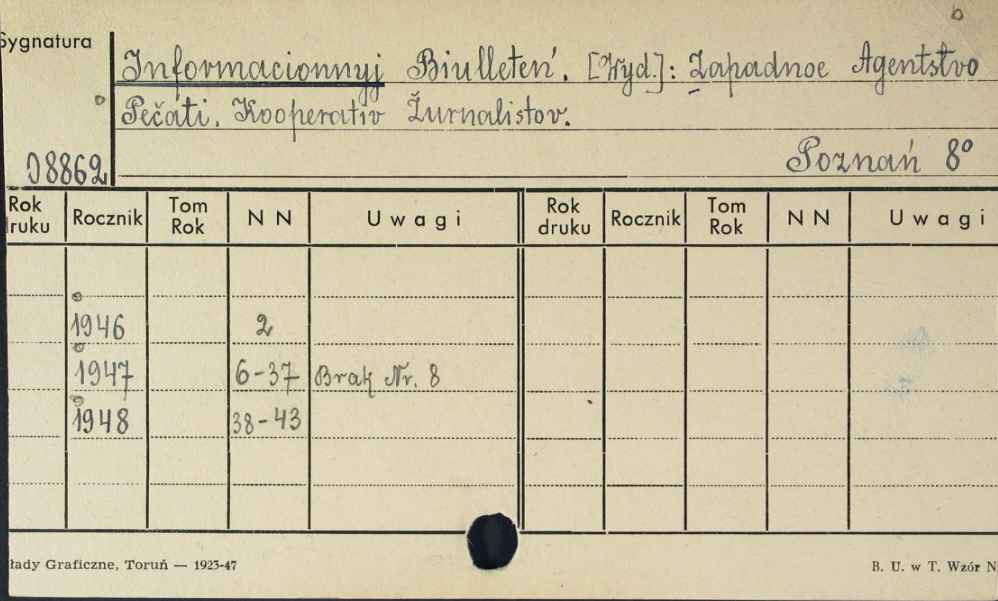 b
Sygnatura
Informacionnyj Biulleteń. [Wyd.]: Zapadnoe Agentstvo
Pečati. Kooperativ Žurnalistov.
Poznań 8°
08862
Rok druku Rocznik Tom Rok N N Uwagi Rok druku Rocznik Tom Rok N N Uwagi
1946 2
1947 6-37 Brak Nr. 8
1948 38-43
łady Graficzne, Toruń — 1923-47 B. U. w T. Wzór N